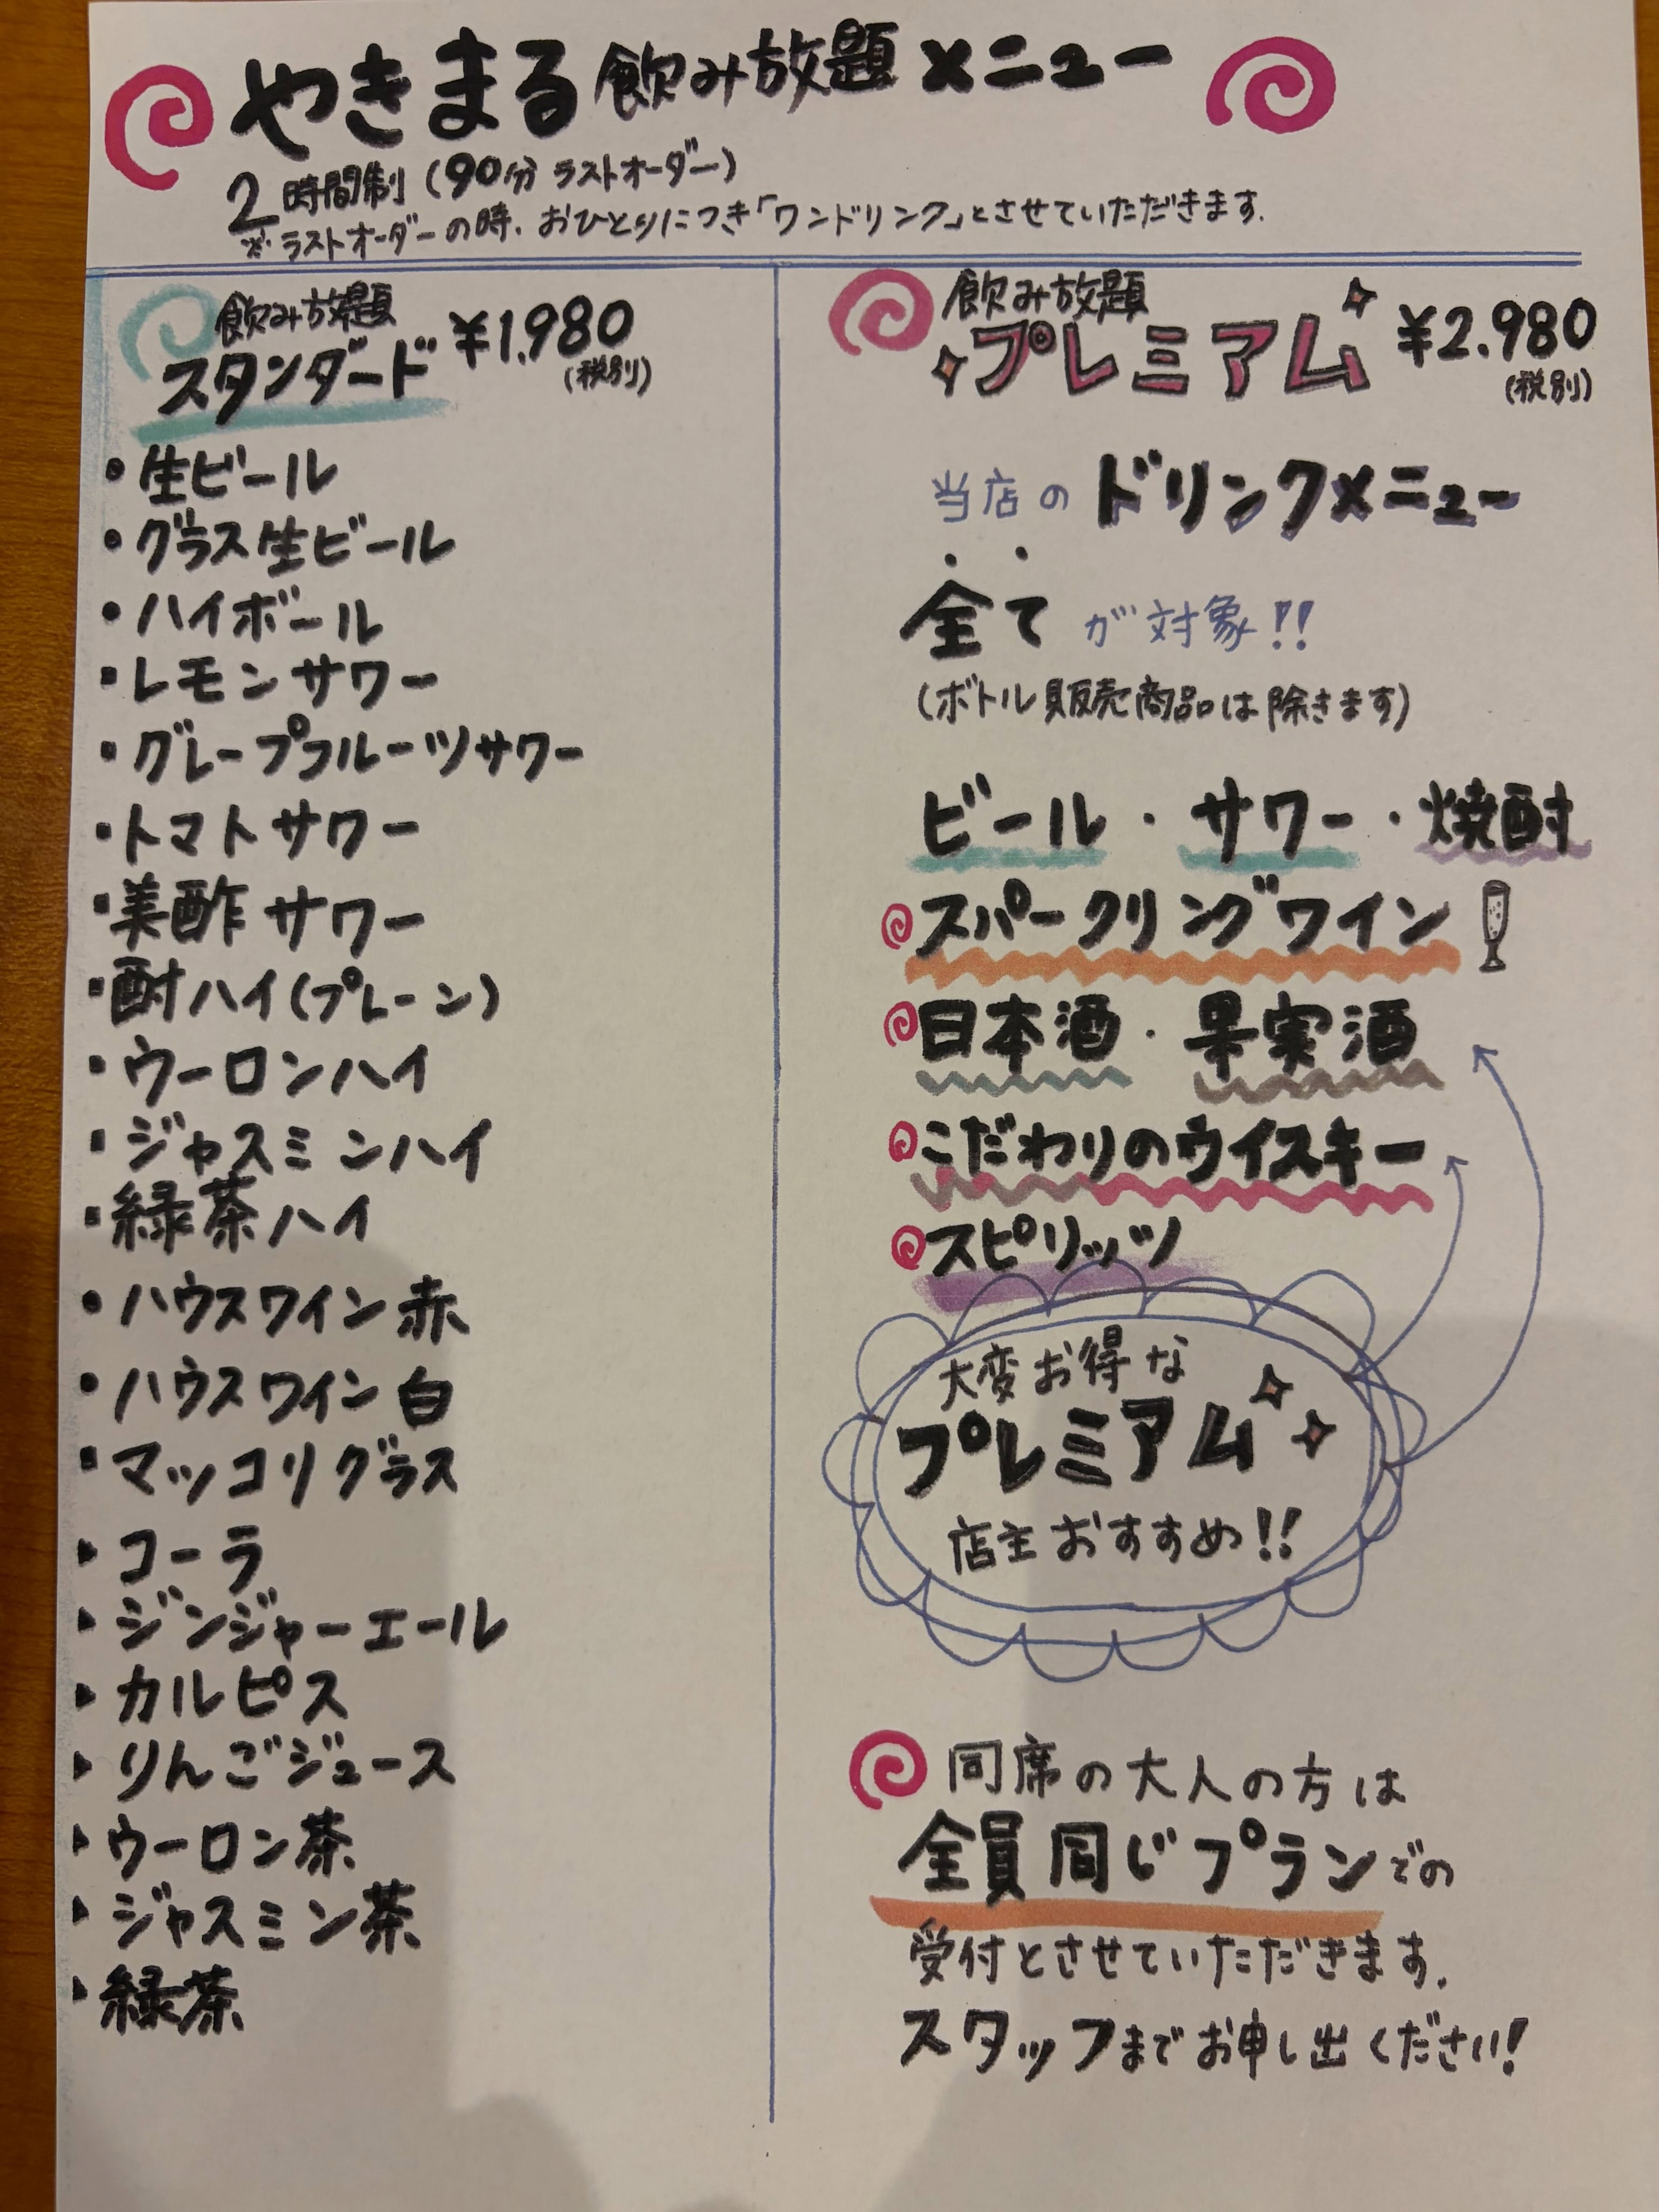 やきまる飲み放題メニュー
2時間制(90分 ラストオーダー)
※ラストオーダーの時、おひとりにつき「ワンドリンク」とさせていただきます.
飲み放題
スタンダード ¥1.980
(税別)
・生ビール
・グラス生ビール
・ハイボール
・レモンサワー
・グレープフルーツサワー
・トマトサワー
・美酢サワー
・酎ハイ(プレーン)
・ウーロンハイ
・ジャスミンハイ
・緑茶ハイ
・ハウスワイン赤
・ハウスワイン白
・マッコリグラス
・コーラ
・ジンジャーエール
・カルピス
・りんごジュース
・ウーロン茶
・ジャスミン茶
・緑茶
飲み放題
プレミアム ¥2.980
(税別)
当店のドリンクメニュー
全てが対象!!
(ボトル販売商品は除きます)
ビール・サワー・焼酎
スパークリングワイン
日本酒・果実酒
こだわりのウイスキー
スピリッツ
大変お得な
プレミアム
店主おすすめ!!
同席の大人の方は
全員同じプランでの
受付とさせていただきます.
スタッフまでお申し出ください!